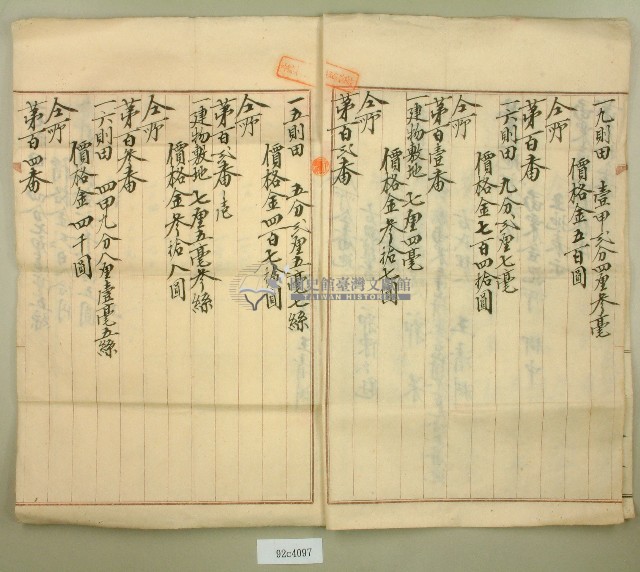 一九則田 壹甲弐分四厘参毫
價格金五百圓
仝所
第百番
一六則田 九分弐厘七毫
價格金七百四拾圓
仝所
第百壹番
一建物敷地 七厘四毫
價格金参拾七圓
仝所
第百弐番
一五則田 五分弐厘五毫七絲
價格金四百七拾圓
仝所
第百弐番ノ壱
一建物敷地 七厘五毫参絲
價格金参拾八圓
仝所
第百参番
一六則田 四甲九分八厘壹毫五絲
價格金四千圓
仝所
第百四番
國史館臺灣文獻館
TAIWAN HISTORICA
92c4097